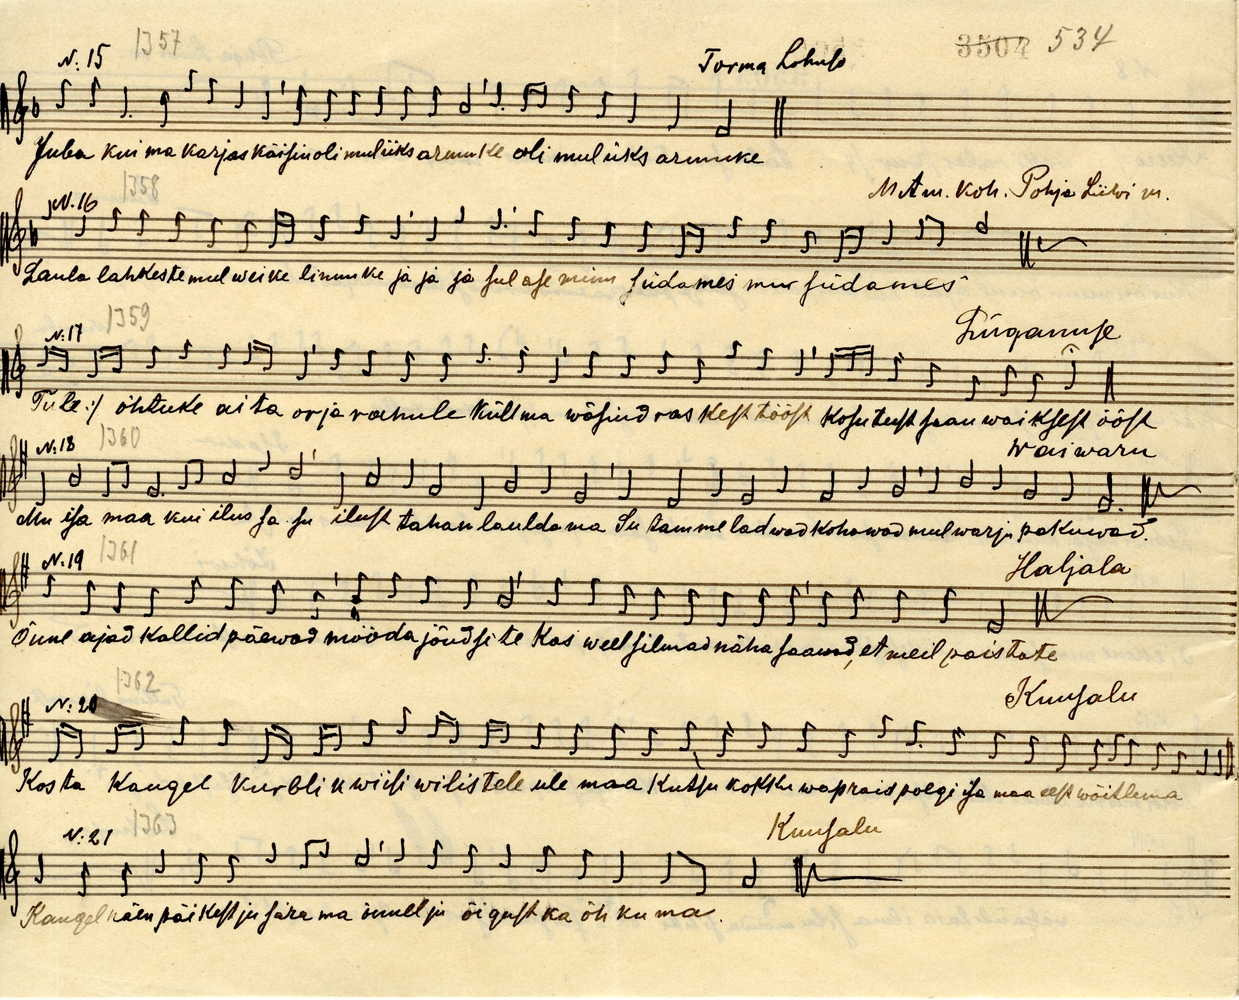 3504 534
1357
N: 15 Torma Lohuse
Juba kui ma karjas käisin oli mul üks armuke oli mul üks armuke
1358
N. 16 M A m. Koh. Pohja Liiwi m.
Laula lahkeste mul weike linnuke ja ja ja sul ase minu südames mur südames
1359
N: 17 Lüganuse
Tule :/ õhtuke aita orja rahule küll ma wäsind ras kest tööst kosutust saan waiksest ööst
1360
N: 18 Waiwaru
Mu isa maa kui ilus sa su ilust tahan laulda ma Su tamme ladwad kohawad mul warju pakuwad.
1361
N: 19 Haljala
Õnne ajad kallid päewad mööda jõudsite Kas weel silmad näha saawad, et meil paistate
1362
N: 20 Kuusalu
Kosta Kangel kurbliku wiisi wilistele üle maa Kutsu kokku waprais poegi isa maa eest wõitlema
1363
N: 21 Kuusalu
Kangel näen päikest ju sära ma õnnel ju õigust ka õh ku ma.